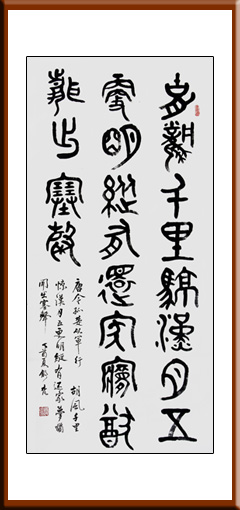 胡風千里驚漢月五
更明縱有還家夢猶
聞出塞聲
唐令狐楚从軍行 胡風千里
驚漢月五更明縱有還家夢猶
聞出塞聲 丁酉夏